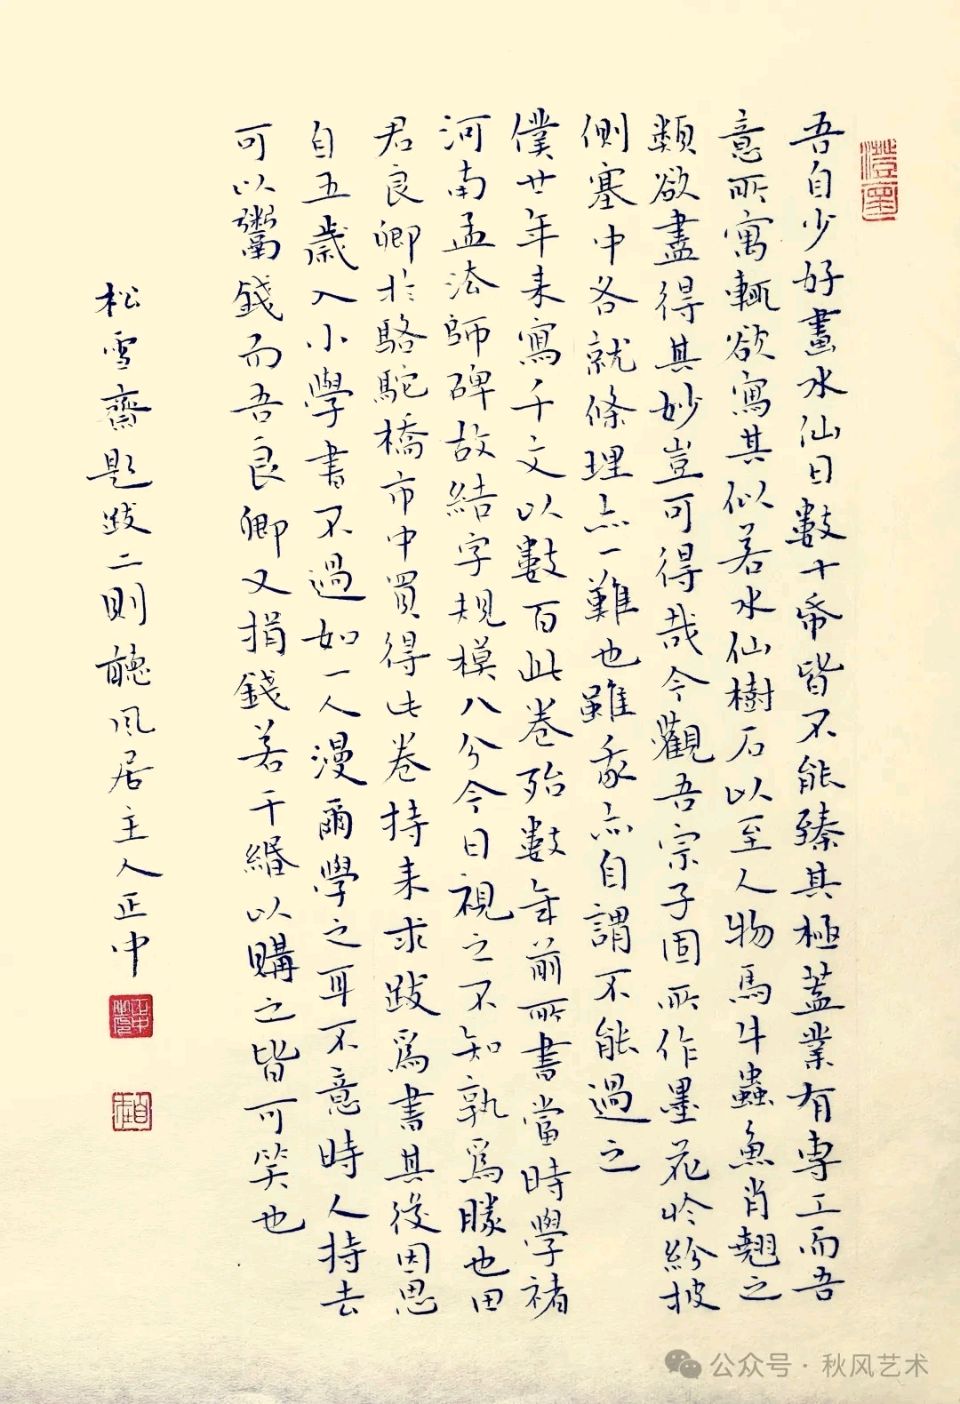 吾自少好畫水仙日數十帋皆不能臻其極蓋業有專工而吾
意所寓輒欲寫其似若水仙樹石以至人物馬牛蟲魚肖翹之
類欲盡得其妙豈可得哉今觀吾宗子固所作墨花於紛披
側塞中各就條理亦一難也雖我亦自謂不能過之
僕廿年來寫千文以數百此卷殆數年前所書當時學褚
河南孟法師碑故結字規模八分今日視之不知孰為勝也田
君良卿於駱駝橋市中買得此卷持來求跋為書其後因思
自五歲入小學書不過如一人漫爾學之耳不意時人持去
可以鬻錢而吾良卿又捐錢若干緡以購之皆可笑也
松雪齋題跋二則聽風居主人正中
公众号·秋风艺术